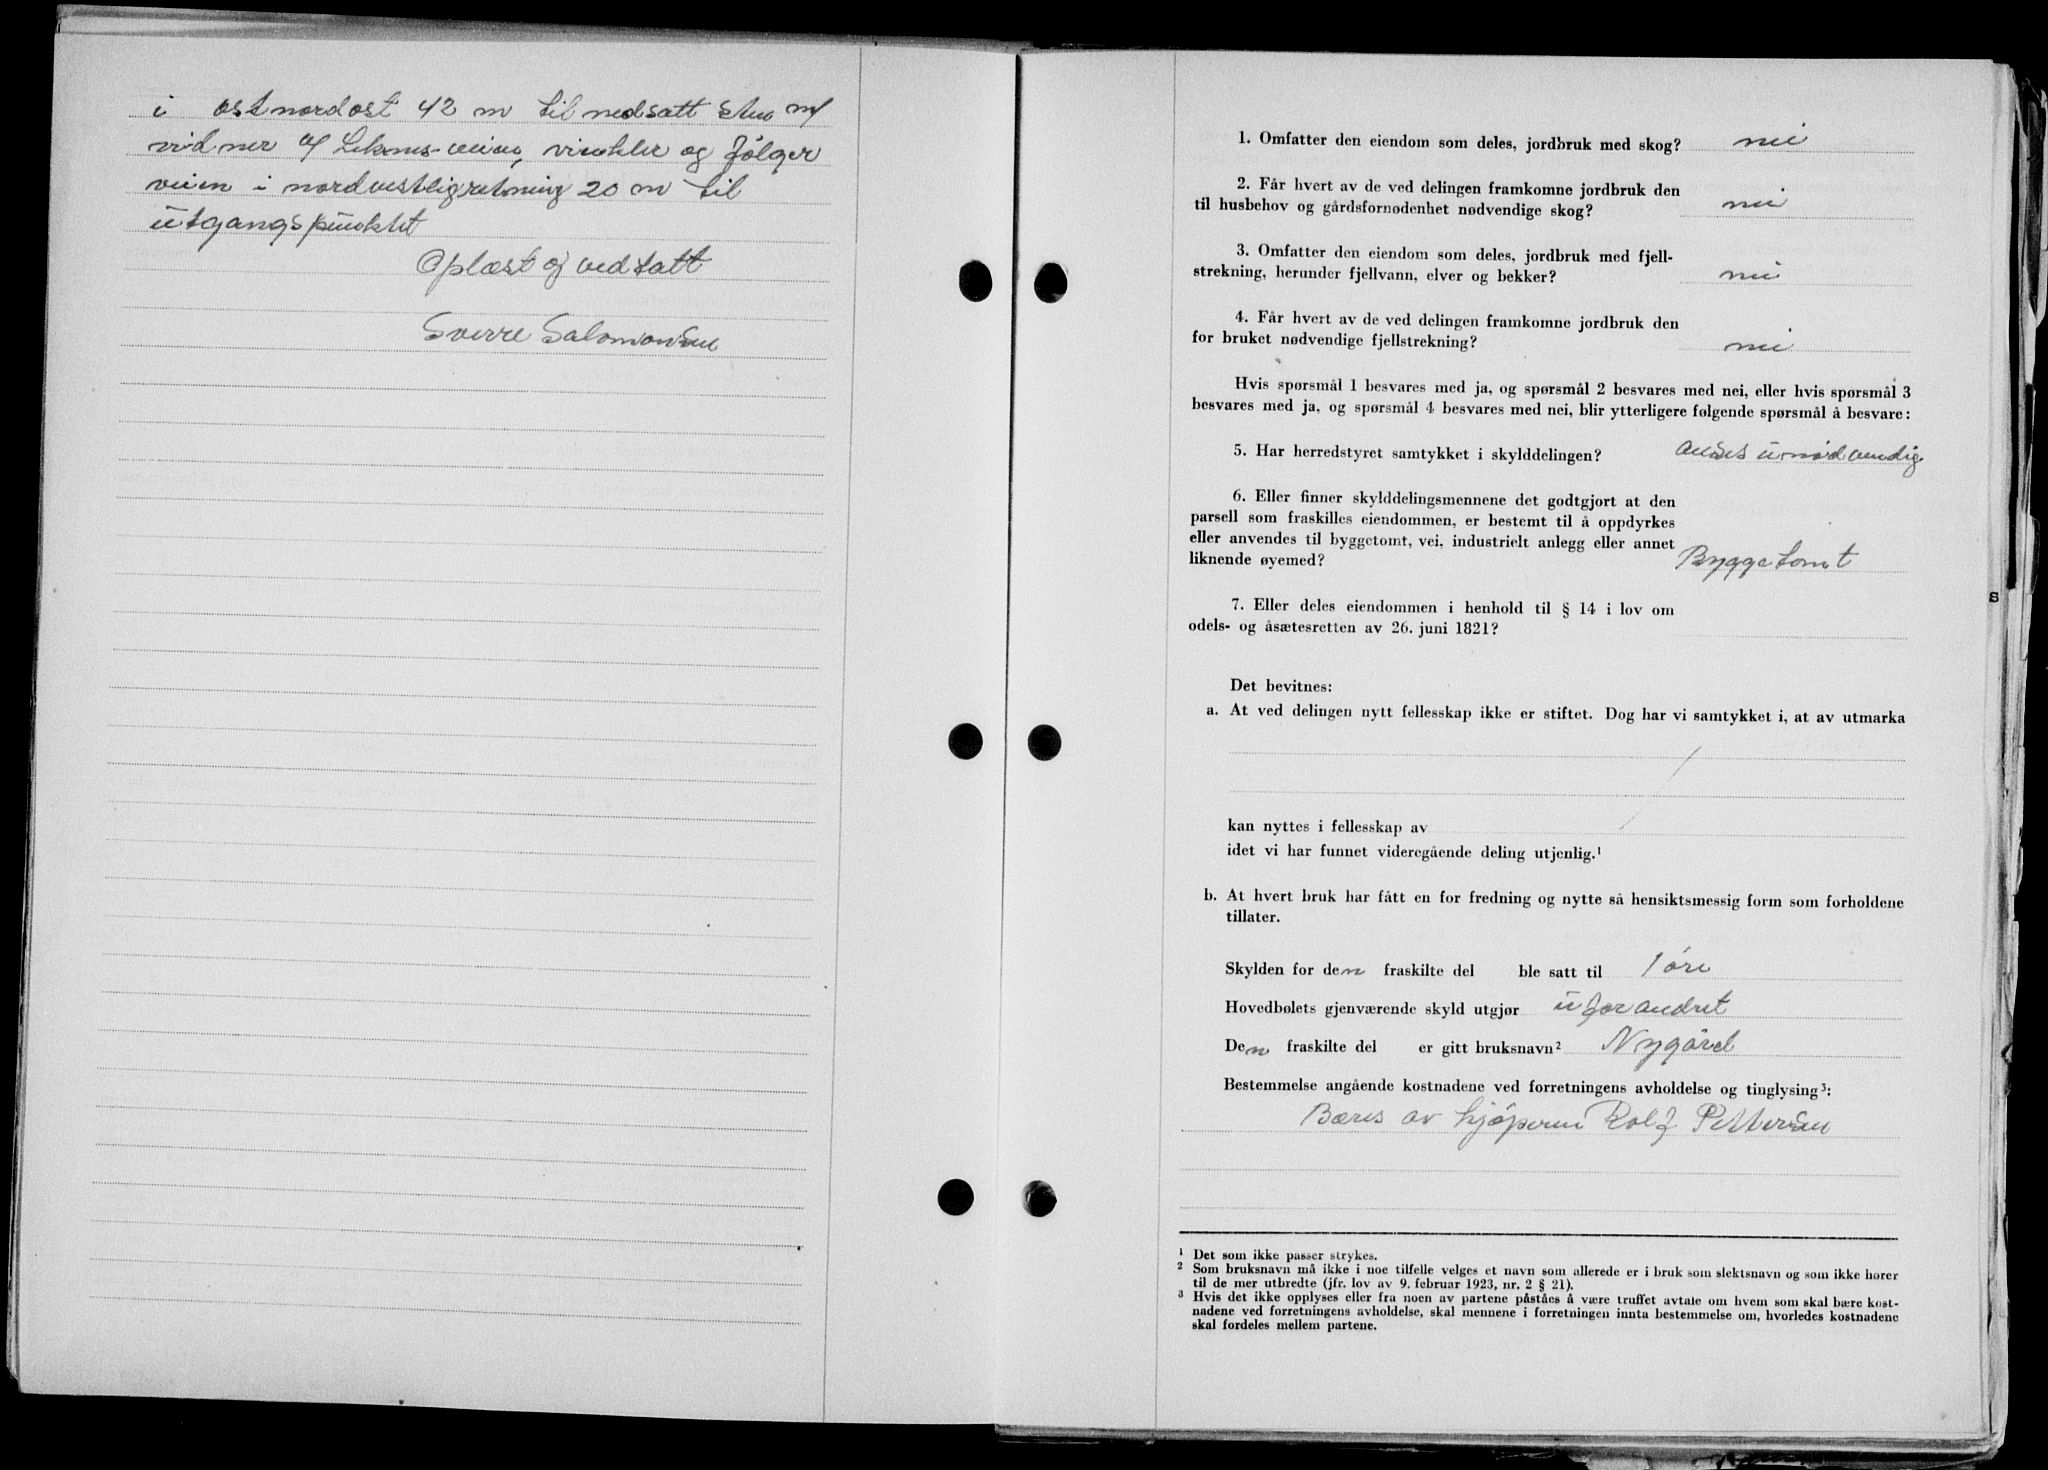 i ostnordost 42 m til nedsatt sten m/
vidner af Leknes-veien, vinkler og følger
veien i nordvestlig retning 20 m til
utgangspunktet
Oplæst og vedtatt
Sverre Salomonsen
1. Omfatter den eiendom som deles, jordbruk med skog? nei
2. Får hvert av de ved delingen framkomne jordbruk den
til husbehov og gårdsfornødenhet nødvendige skog? nei
3. Omfatter den eiendom som deles, jordbruk med fjell-
strekning, herunder fjellvann, elver og bekker? nei
4. Får hvert av de ved delingen framkomne jordbruk den
for bruket nødvendige fjellstrekning? nei
Hvis spørsmål 1 besvares med ja, og spørsmål 2 besvares med nei, eller hvis spørsmål 3
besvares med ja, og spørsmål 4 besvares med nei, blir ytterligere følgende spørsmål å besvare:
5. Har herredstyret samtykket i skylddelingen? ansees unødvendig
6. Eller finner skylddelingsmennene det godtgjort at den
parsell som fraskilles eiendommen, er bestemt til å oppdyrkes
eller anvendes til byggetomt, vei, industrielt anlegg eller annet
liknende øyemed? Byggetomt
7. Eller deles eiendommen i henhold til § 14 i lov om
odels- og åsætesretten av 26. juni 1821?
Det bevitnes:
a. At ved delingen nytt fellesskap ikke er stiftet. Dog har vi samtykket i, at av utmarka
kan nyttes i fellesskap av
idet vi har funnet videregående deling utjenlig.¹
b. At hvert bruk har fått en for fredning og nytte så hensiktsmessig form som forholdene
tillater.
Skylden for den fraskilte del ble satt til 1 øre
Hovedbølets gjenværende skyld utgjør uforandret
Den fraskilte del er gitt bruksnavn² Nygård
Bestemmelse angående kostnadene ved forretningens avholdelse og tinglysing³:
Bæres av kjøperen Rolf Pettersen
¹ Det som ikke passer strykes.
² Som bruksnavn må ikke i noe tilfelle velges et navn som allerede er i bruk som slektsnavn og som ikke hører
til de mer utbredte (jfr. lov av 9. februar 1923, nr. 2 § 21).
³ Hvis det ikke opplyses eller fra noen av partene påståes å være truffet avtale om hvem som skal bære kost-
nadene ved forretningens avholdelse, skal mennene i forretningen innta bestemmelse om, hvorledes kostnadene
skal fordeles mellem partene.
S